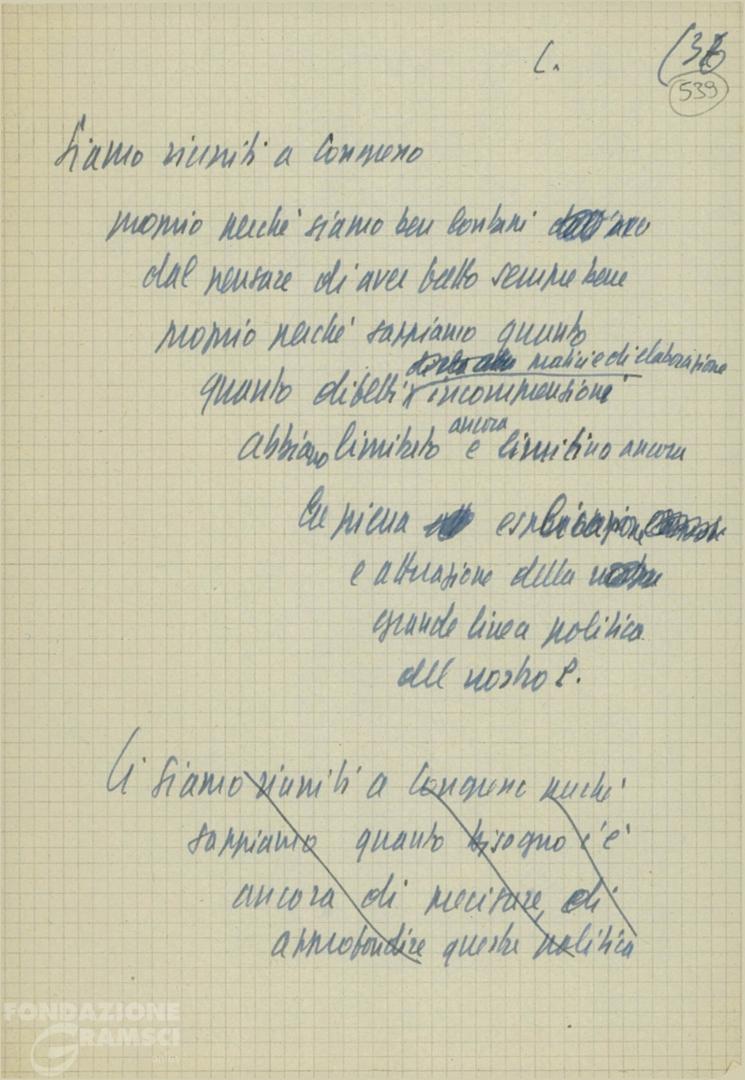 C.
(36
539
Siamo riuniti a Congresso
proprio perché siamo ben lontani
dal pensare di aver fatto sempre bene
proprio perché sappiamo quanto
quanto difetti incomprensioni
malizie di elaborazione
abbiamo limitato ancora e limitino ancora
la piena esplicazione
e attuazione della
grande linea politica
del nostro P.
Ci siamo riuniti a Congresso perché
sappiamo quanto bisogno c'è
ancora di precisare, di
approfondire questa politica
FONDAZIONE
GRAMSCI